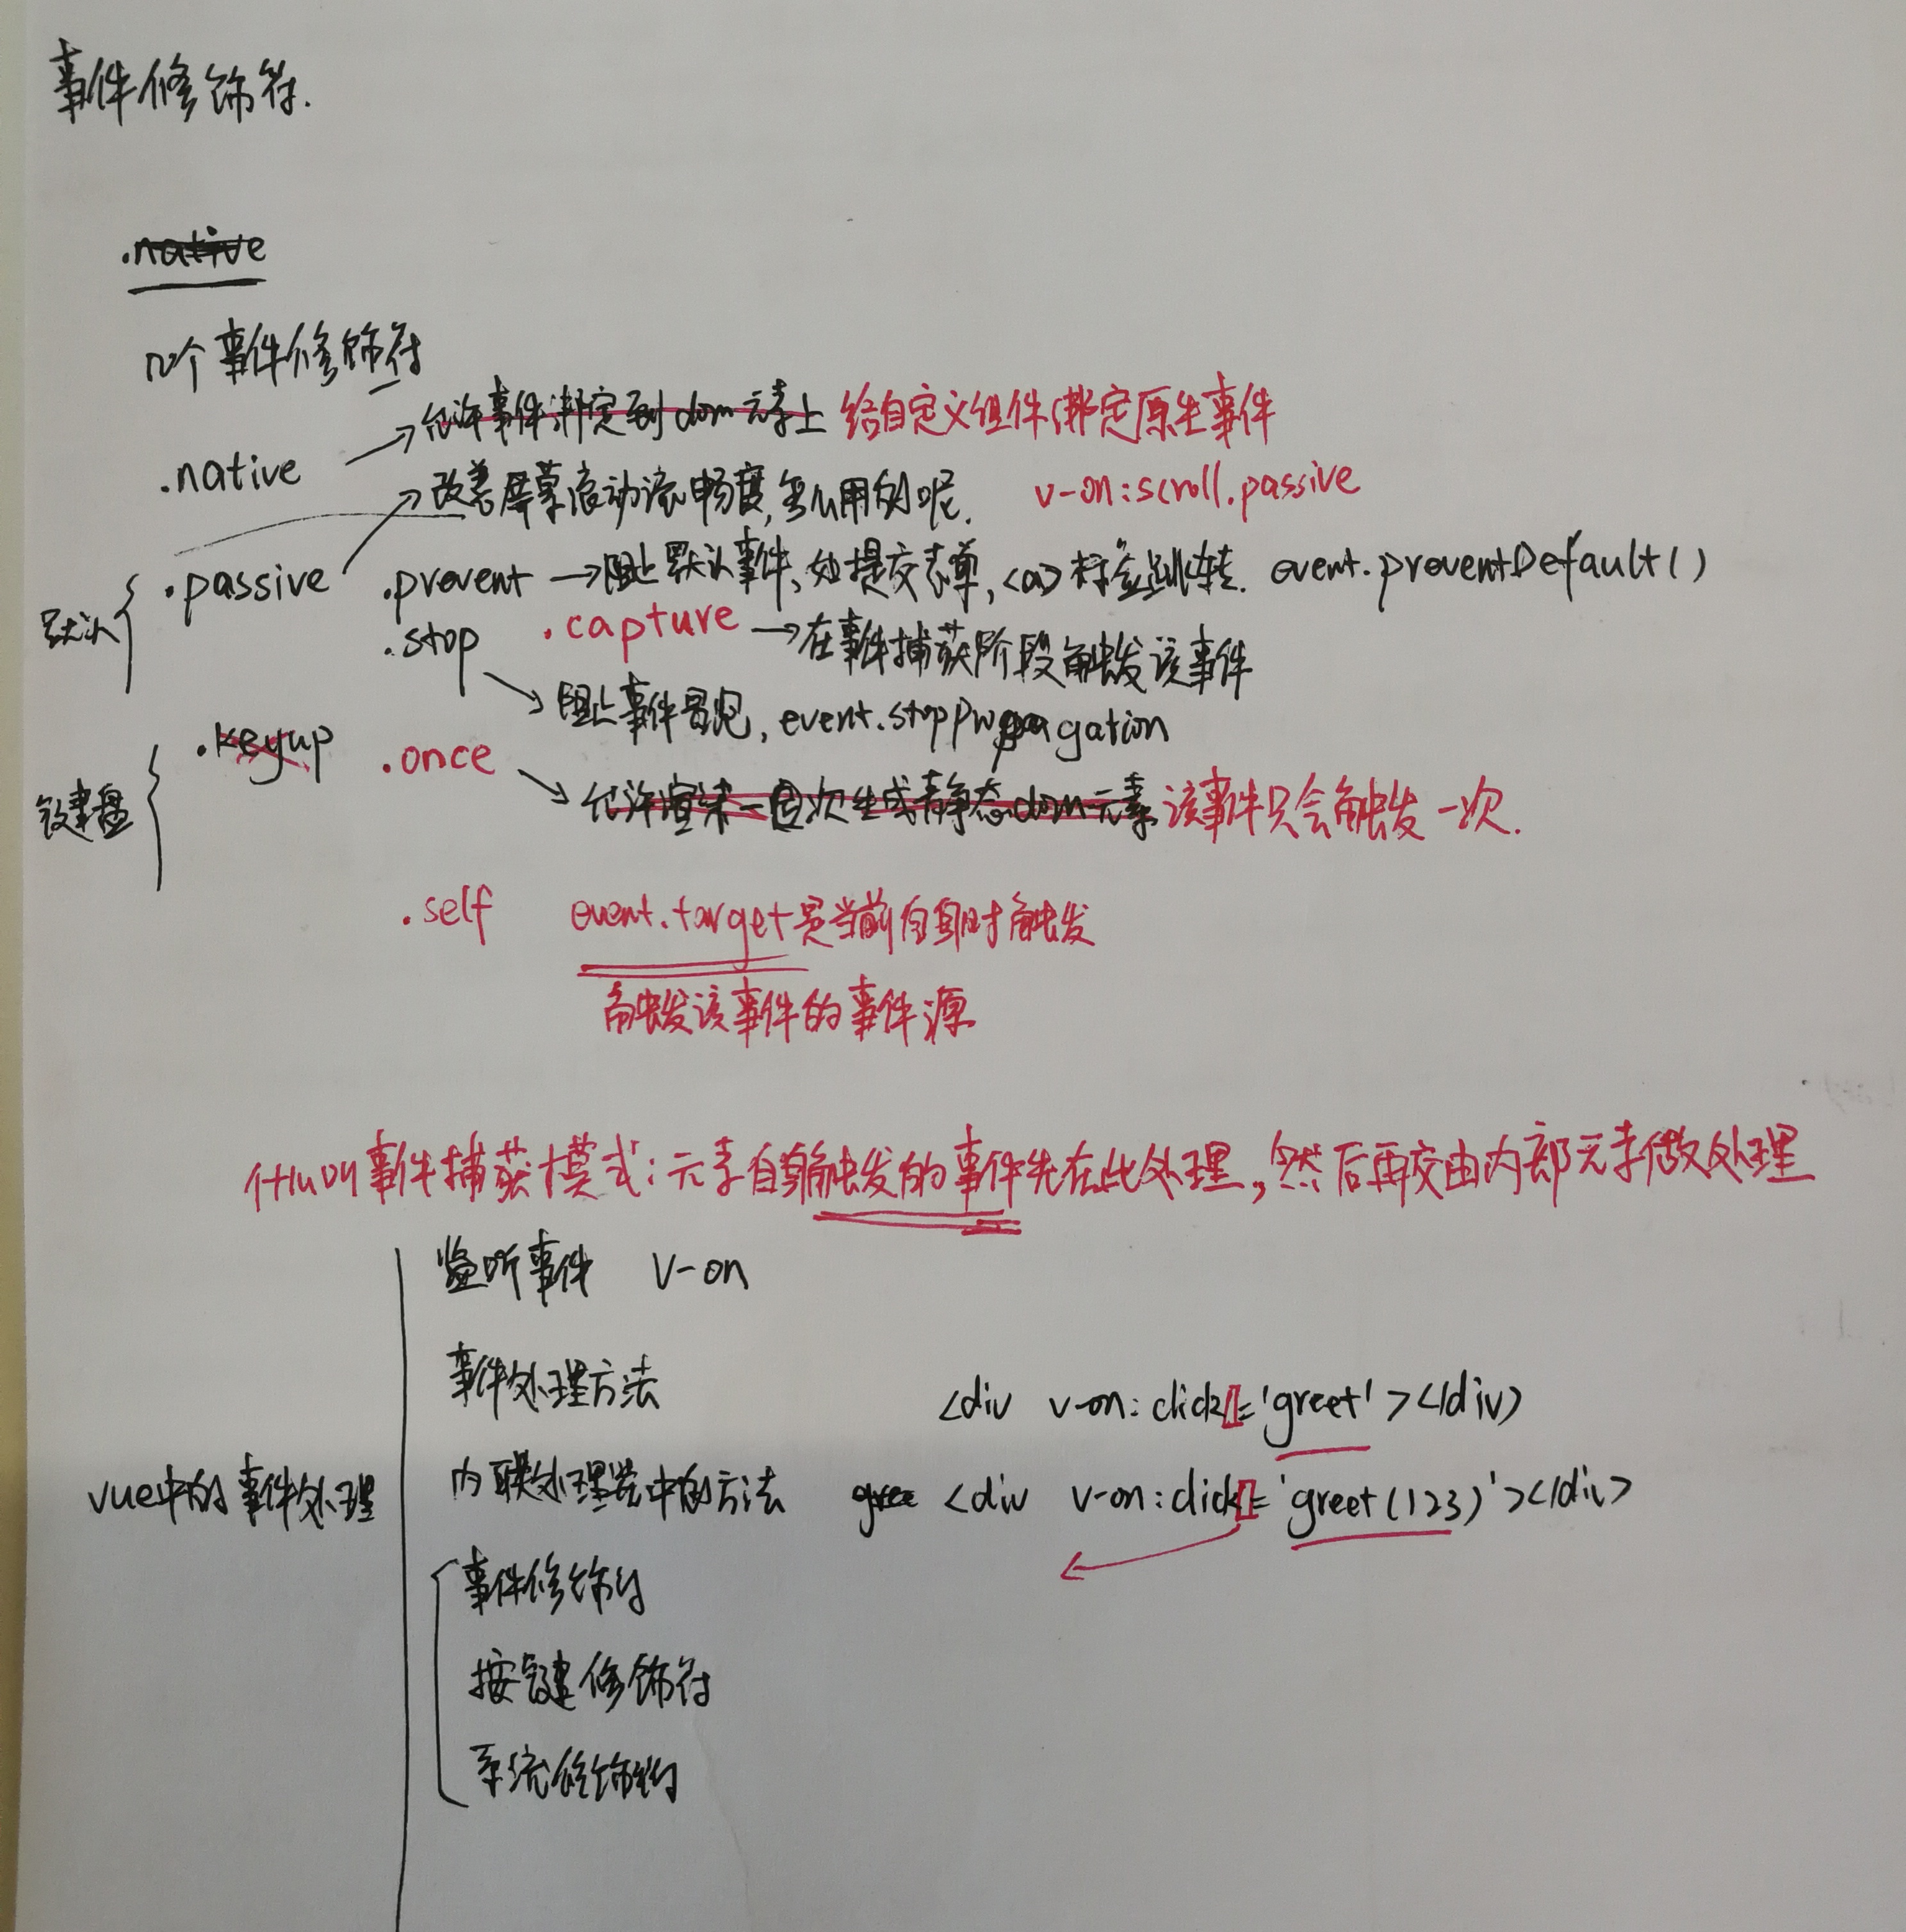 事件修饰符.
.native
几个事件修饰符
允许事件绑定到dom元素上 给自定义组件绑定原生事件
.native
改善屏幕滚动流畅度,怎么用的呢. v-on:scroll.passive
默认 .passive .prevent →阻止默认事件、如提交表单,<a>标签跳转. event.preventDefault()
.stop .capture →在事件捕获阶段触发该事件
阻止事件冒泡, event.stopPropagation
键盘 .keyup .once
允许渲染一次生成静态dom元素 该事件只会触发一次.
.self event.target是当前自身时触发
触发该事件的事件源
事件捕获模式:元素自身触发的事件先在此处理,然后再交由内部元素做处理
监听事件 v-on
事件处理方法 <div v-on:click='greet'></div>
vue中的事件处理 内联处理器中的方法 gree <div v-on:click='greet(123)'></div>
事件修饰符
按键修饰符
系统修饰符